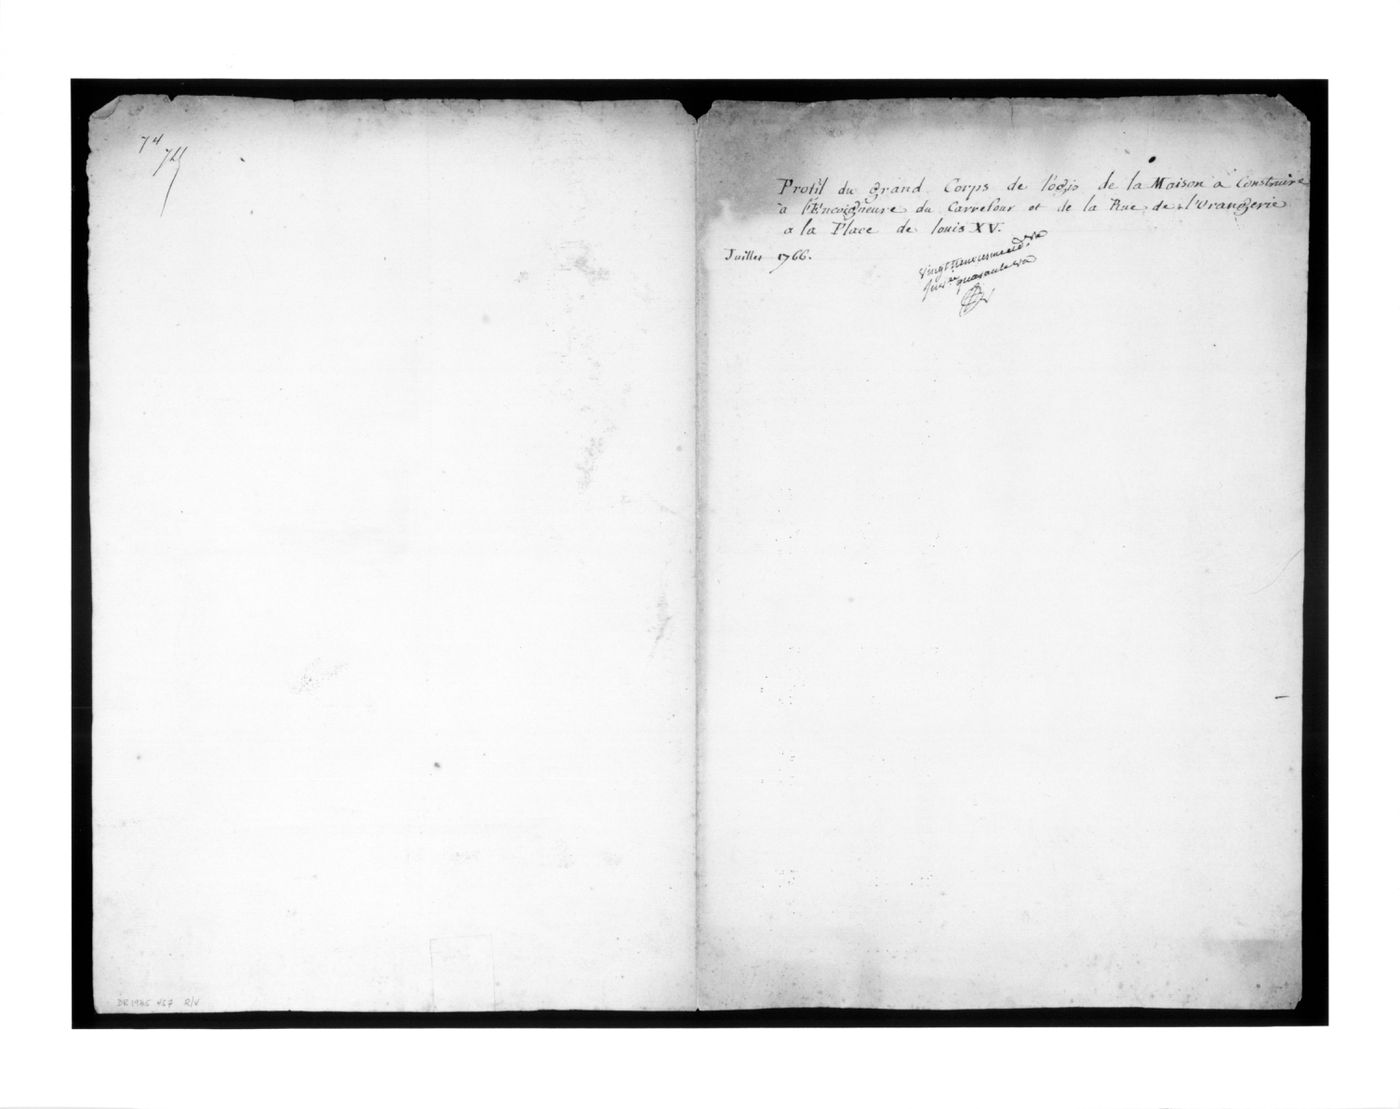 74
74
Profil du grand Corps de logis de la Maison a Construire
a l'Encoigneure du Carrefour et de la Rue de l'Orangerie
a la Place de louis XV.
Juillet 1766.
vingt
quarante
DR1985 457 R/V